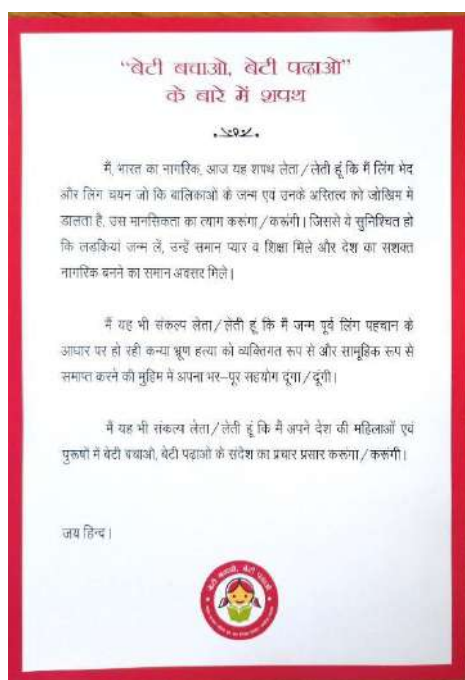 “बेटी बचाओ, बेटी पढाओ”
के बारे में शपथ
मैं, भारत का नागरिक, आज यह शपथ लेता/लेती हूं कि मैं लिंग भेद
और लिंग चयन जो कि बालिकाओं के जन्म एवं उनके अस्तित्व को जोखिम में
डालता है, उस मानसिकता का त्याग करूंगा/करूंगी। जिससे ये सुनिश्चित हो
कि लडकियां जन्म लें, उन्हें समान प्यार व शिक्षा मिले और देश का सशक्त
नागरिक बनने का समान अवसर मिले।
मैं यह भी संकल्प लेता/लेती हूं कि मैं जन्म पूर्व लिंग पहचान के
आधार पर हो रही कन्या भ्रूण हत्या को व्यक्तिगत रूप से और सामूहिक रूप से
समाप्त करने की मुहिम में अपना भर–पूर सहयोग दूंगा/दूंगी।
मैं यह भी संकल्प लेता/लेती हूं कि मैं अपने देश की महिलाओं एवं
पुरूषों में बेटी बचाओ, बेटी पढ़ाओ के संदेश का प्रचार प्रसार करूंगा/करूंगी।
जय हिन्द।
बेटी बचाओ, बेटी पढ़ाओ